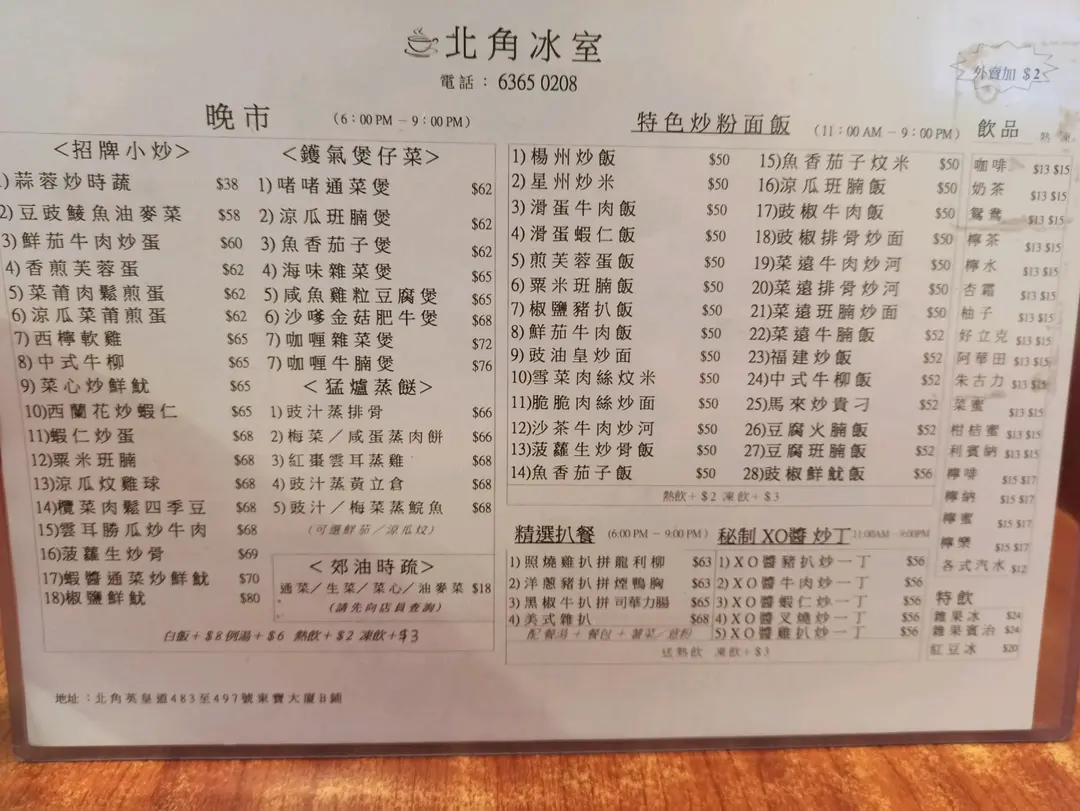 北角冰室
電話：6365 0208
外賣加 $2
晚市 (6：00 PM – 9：00 PM)
<招牌小炒>
1) 蒜蓉炒時蔬 $38
2) 豆豉鯪魚油麥菜 $58
3) 鮮茄牛肉炒蛋 $60
4) 香煎芙蓉蛋 $62
5) 菜莆肉鬆煎蛋 $62
6) 涼瓜菜莆煎蛋 $62
7) 西檸軟雞 $65
8) 中式牛柳 $65
9) 菜心炒鮮魷 $65
10) 西蘭花炒蝦仁 $65
11) 蝦仁炒蛋 $68
12) 粟米班腩 $68
13) 涼瓜炆雞球 $68
14) 欖菜肉鬆四季豆 $68
15) 雲耳勝瓜炒牛肉 $68
16) 菠蘿生炒骨 $69
17) 蝦醬通菜炒鮮魷 $70
18) 椒鹽鮮魷 $80
<鑊氣煲仔菜>
1) 啫啫通菜煲 $62
2) 涼瓜班腩煲 $62
3) 魚香茄子煲 $62
4) 海味雜菜煲 $65
5) 咸魚雞粒豆腐煲 $65
6) 沙嗲金菇肥牛煲 $68
7) 咖喱雜菜煲 $72
7) 咖喱牛腩煲 $76
<猛爐蒸餸>
1) 豉汁蒸排骨 $66
2) 梅菜／咸蛋蒸肉餅 $66
3) 紅棗雲耳蒸雞 $68
4) 豉汁蒸黃立倉 $68
5) 豉汁／梅菜蒸鯇魚 $68
(可選鮮茄／涼瓜炆)
<郊油時蔬>
通菜／生菜／菜心／油麥菜 $18
(請先向店員查詢)
白飯+$8 例湯+$6 熱飲+$2 凍飲+$3
特色炒粉面飯 (11：00 AM – 9：00 PM)
1) 楊州炒飯 $50
2) 星州炒米 $50
3) 滑蛋牛肉飯 $50
4) 滑蛋蝦仁飯 $50
5) 煎芙蓉蛋飯 $50
6) 粟米班腩飯 $50
7) 椒鹽豬扒飯 $50
8) 鮮茄牛肉飯 $50
9) 豉油皇炒面 $50
10) 雪菜肉絲炆米 $50
11) 脆脆肉絲炒面 $50
12) 沙茶牛肉炒河 $50
13) 菠蘿生炒骨飯 $50
14) 魚香茄子飯 $50
15) 魚香茄子炆米 $50
16) 涼瓜班腩飯 $50
17) 豉椒牛肉飯 $50
18) 豉椒排骨炒面 $50
19) 菜遠牛肉炒河 $50
20) 菜遠排骨炒河 $50
21) 菜遠班腩炒面 $50
22) 菜遠牛腩飯 $52
23) 福建炒飯 $52
24) 中式牛柳飯 $52
25) 馬來炒貴刁 $52
26) 豆腐火腩飯 $52
27) 豆腐班腩飯 $52
28) 豉椒鮮魷飯 $56
熱飲+$2 凍飲+$3
精選扒餐 (6:00 PM – 9:00 PM)
1) 照燒雞扒拼龍利柳 $63
2) 洋蔥豬扒拼煙鴨胸 $63
3) 黑椒牛扒拼司華力腸 $65
4) 美式雜扒 $68
配餐湯+餐包+薯菜／意粉
秘制XO醬炒丁 11:00AM – 9:00PM
1) XO醬豬扒炒一丁 $56
2) XO醬牛肉炒一丁 $56
3) XO醬蝦仁炒一丁 $56
4) XO醬叉燒炒一丁 $56
5) XO醬雞扒炒一丁 $56
送熱飲 凍飲+$3
飲品 熱 凍
咖啡 $13 $15
奶茶 $13 $15
鴛鴦 $13 $15
檸茶 $13 $15
檸水 $13 $15
杏霜 $13 $15
柚子 $13 $15
好立克 $13 $15
阿華田 $13 $15
朱古力 $13 $15
菜蜜 $13 $15
柑桔蜜 $13 $15
利賓納 $13 $15
檸啡 $15 $17
檸納 $15 $17
檸蜜 $15 $17
檸樂 $15 $17
各式汽水 $12
特飲
雜果冰 $24
雜果賓治 $24
紅豆冰 $20
地址：北角英皇道483至497號東寶大廈B鋪